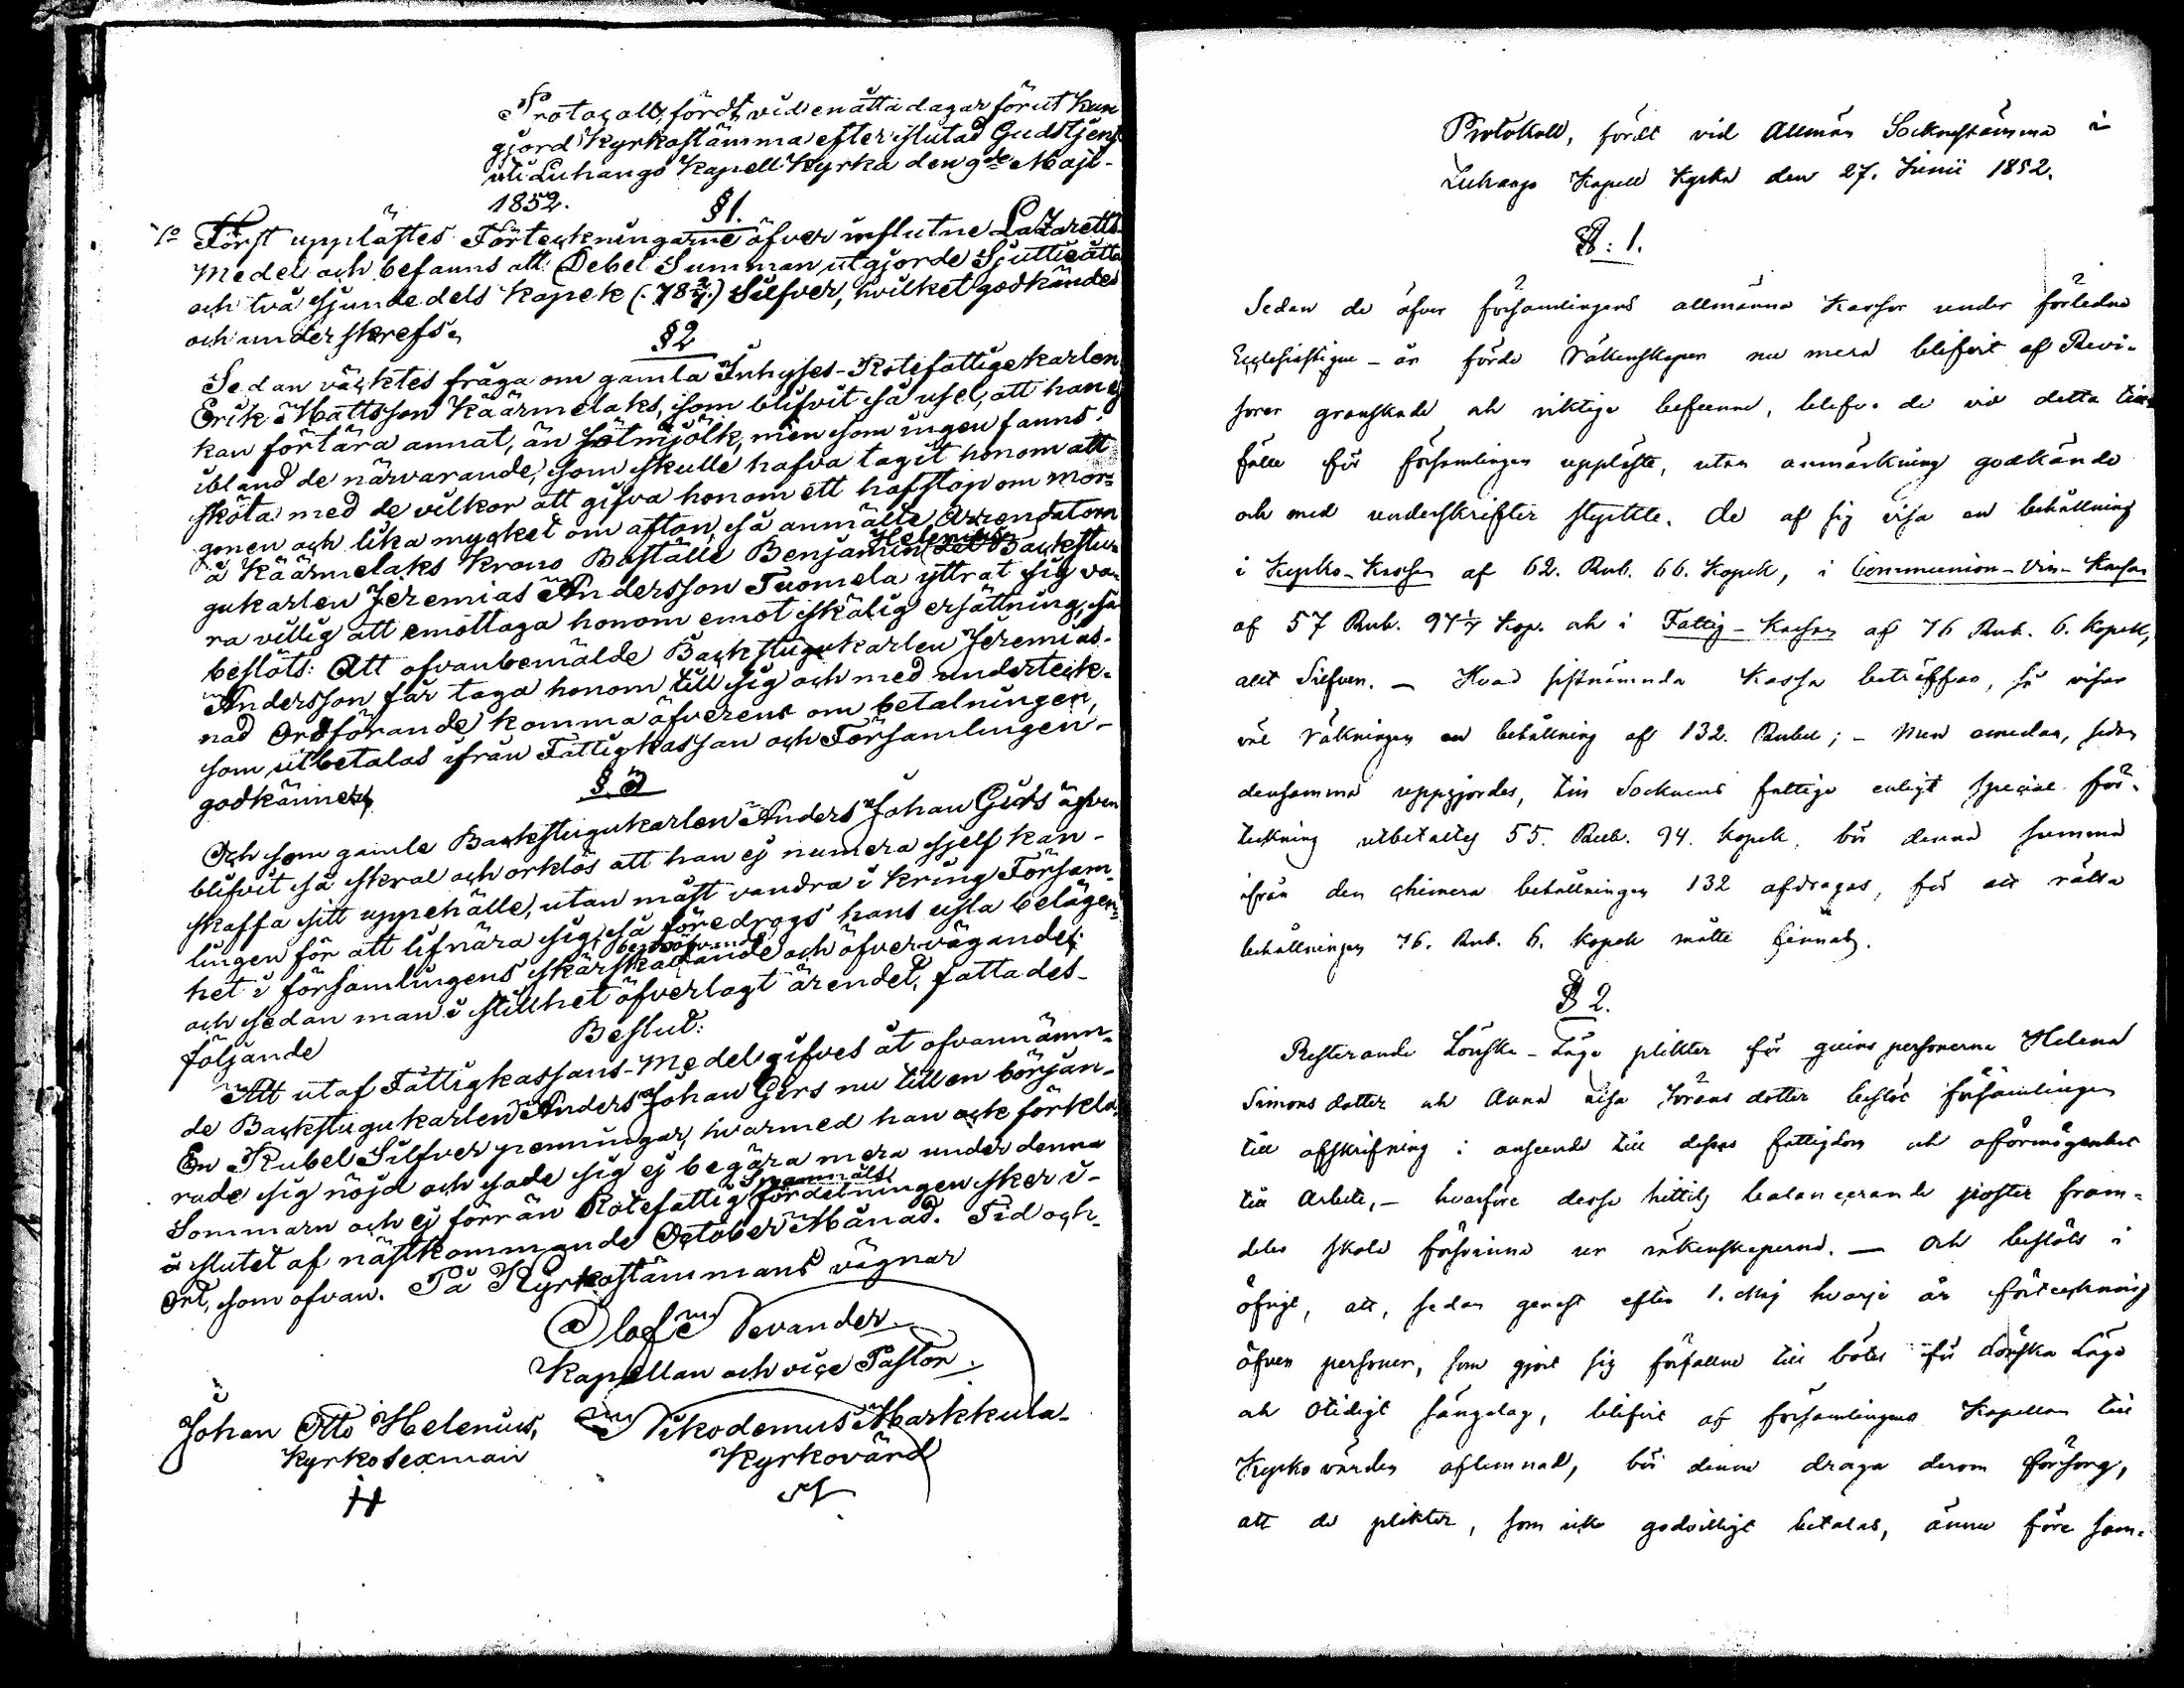 Protocoll, fördt vid en åtta dagar förut kun
gjord Kyrkostämma efter slutad Gudstjenst
uti Luhango Kapell Kyrka den 9de Maji
1852.
§ 1.
1o Först upplästes Förteckningarne öfver influtne Lazaretts
Medel och befanns att Debet Summan utgjorde Sjuttioåtta
och två sjundedels kopek (78 2/7.) Silfver, hvilket godkändes
och underskrefs.
§ 2
Sedan väcktes fråga om gamla Inhyses-Rotefattigekarlen
Erik Mattsson Käärmelaks, som blifvit så usel, att han ej
kan förtära annat, än sötmjölk, men som ingen fanns
ibland de närvarande, som skulle hafva tagit honom att
sköta med de vilkor att gifva honom ett halfstop om mor-
gonen och lika mycket om afton, så anmälte Arrendatorn
å Käärmelaks Krono Boställe Benjamin Helenius det Backstu-
gukarlen Jeremias Andersson Tuomela yttrat sig va-
ra villig att emottaga honom emot skälig ersättning, så
beslöts: Att ofvanbemälde Backstugukarlen Jeremias
Andersson får taga honom till sig och med underteck-
nad Ordförande komma öfverens om betalningen,
som utbetalas ifrån Fattigkassan och Församlingen
godkänner.
§. 3
Och som gamle Backstugukarlen Anders Johan Girs äfven
blifvit så skral och orklös att han ej numera sjelf kan
skaffa sitt uppehälle, utan måst vandra i kring Försam-
lingen för att lifnära sig, så föredrogs hans usla belägen-
het i församlingens skärskådande bepröfvande och öfvervägande;
och sedan man i stillhet öfverlagt ärendet, fattades
följande Beslut:
Att utaf Fattigkassans-Medel gifves åt ofvannämn-
de Backstugukarlen Anders Johan Girs nu till en början
En Rubel Silfver penningar, hvarmed han ock förkla-
rade sig nöjd och sade sig ej begära mera under denna
Sommarn och ej förrän Rotefattig Spannmåls fördelningen sker i
slutet af nästkommande October Månad. Tid och
Ort, som ofvan. På Kyrkostämmans vägnar
Olof Nevander.
Kapellan och vice Pastor.
Johan Otto Helenius, Nikodemus Markkula
Kyrkosexman Kyrkovärd
Protokoll, fördt vid Allmän Socknestämma i
Luhango Kapell Kyrka den 27. Junii 1852.
§: 1.
Sedan de öfver församlingens allmänna Kassor under förledne
Ecclesiastique-år förde räkenskaper nu mera blifvit af Revi-
sorer granskade och riktige befunne, blefvo de vid detta till-
fälle för församlingen uppläste, utan anmärkning godkände
och med underskrifter styrkte. De af sig visa en behållning
i Kyrko-Kassan af 62. Rub. 66. Kopek, i Communion-Vin-Kassan
af 57 Rub. 97 1/7 Kop. och i Fattig-Kassan af 76 Rub. 6. Kopek,
allt Silfver. — Hvad sistnämnda Kassa beträffar, så visar
väl räkningen en behållning af 132. Rubel; - Men emedan, sedan
densamma uppgjordes, till Socknens fattige enligt special för-
teckning utbetaltes 55. Rub. 94. kopek, bör denna summa
ifrån den chimera behållningen 132 afdragas, för att rätta
behållningen 76. Rub. 6. Kopek måtte finnas.
§ 2.
Resterande Lönska-Läge plikter för qvinspersonerna Helena
Simonsdotter och Anna Lisa Jöransdotter beslöt församlingen
till afskrifning i anseende till dessas fattigdom och oförmögenhet
till Arbete, — hvarföre desse hittils balancerande poster fram-
deles skola försvinna ur räkenskaperna. — Och beslöts i
öfrigt, att, sedan genast efter 1. Maj hvarje år förteckning
öfver personer, som gjort sig förfallne till böter för Lönska Läge
och Otidigt sängelag, blifvit af församlingens Kapellan till
Kyrkovärden aflemnad, bör denne draga derom försorg,
att de plikter, som icke godvilligt betalas, ännu före som-